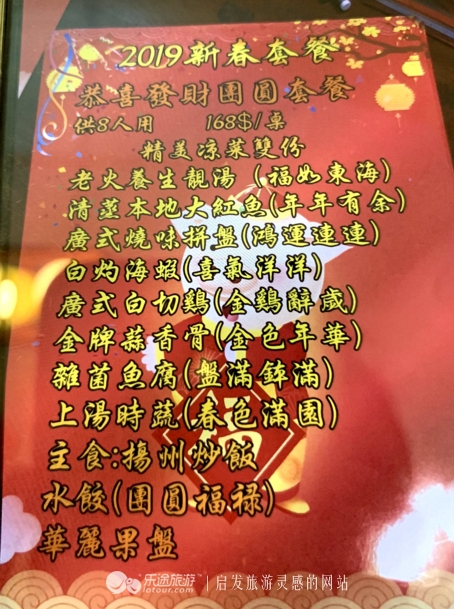 2019新春套餐
恭喜發財團圓套餐
供8人用 168$/桌
精美凉菜雙份
老火養生靚湯（福如東海）
清蒸本地大紅魚(年年有余)
廣式燒味拼盤(鴻運連連)
白灼海蝦(喜氣洋洋)
廣式白切鷄(金鷄辭歲)
金牌蒜香骨(金色年華)
雜菌魚腐(盤滿鉢滿)
上湯時蔬(春色滿園)
主食:揚州炒飯
水餃(團圓福禄)
華麗果盤
乐途旅游 lotour.com | 启发旅游灵感的网站